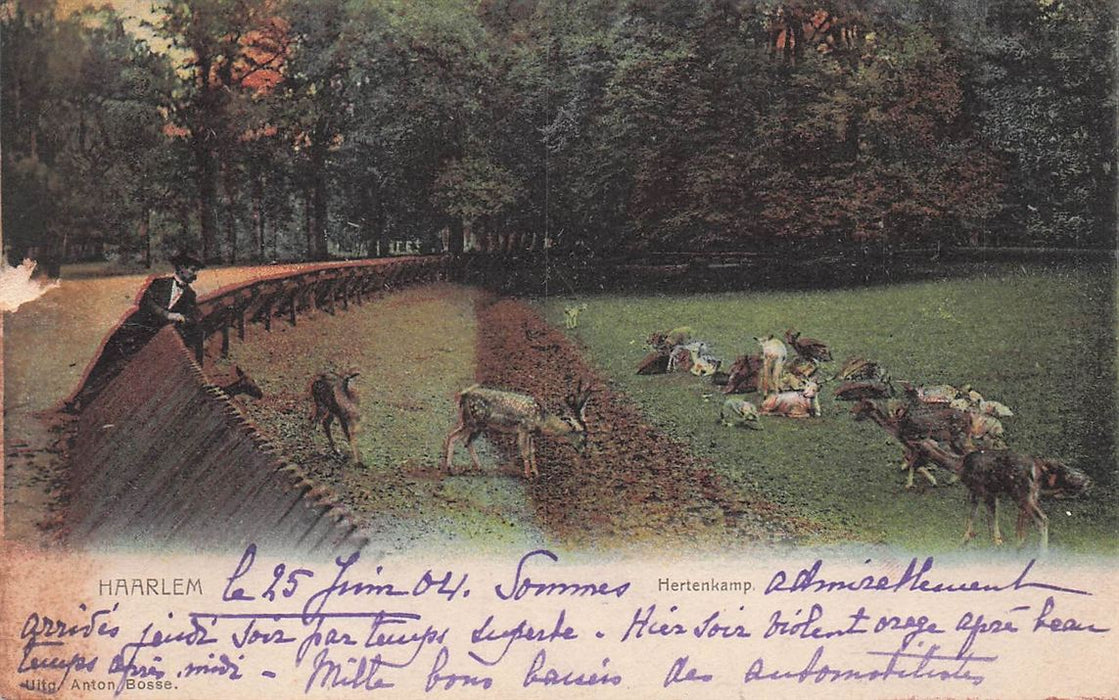 HAARLEM le 25 Juin 04. Sommes Hertenkamp. admirablement
arrivés jeudi soir par temps superbe - Hier soir violent orage après beau
temps après midi - Mille bons baisers des automobilistes
Uitg. Anton Bosse.